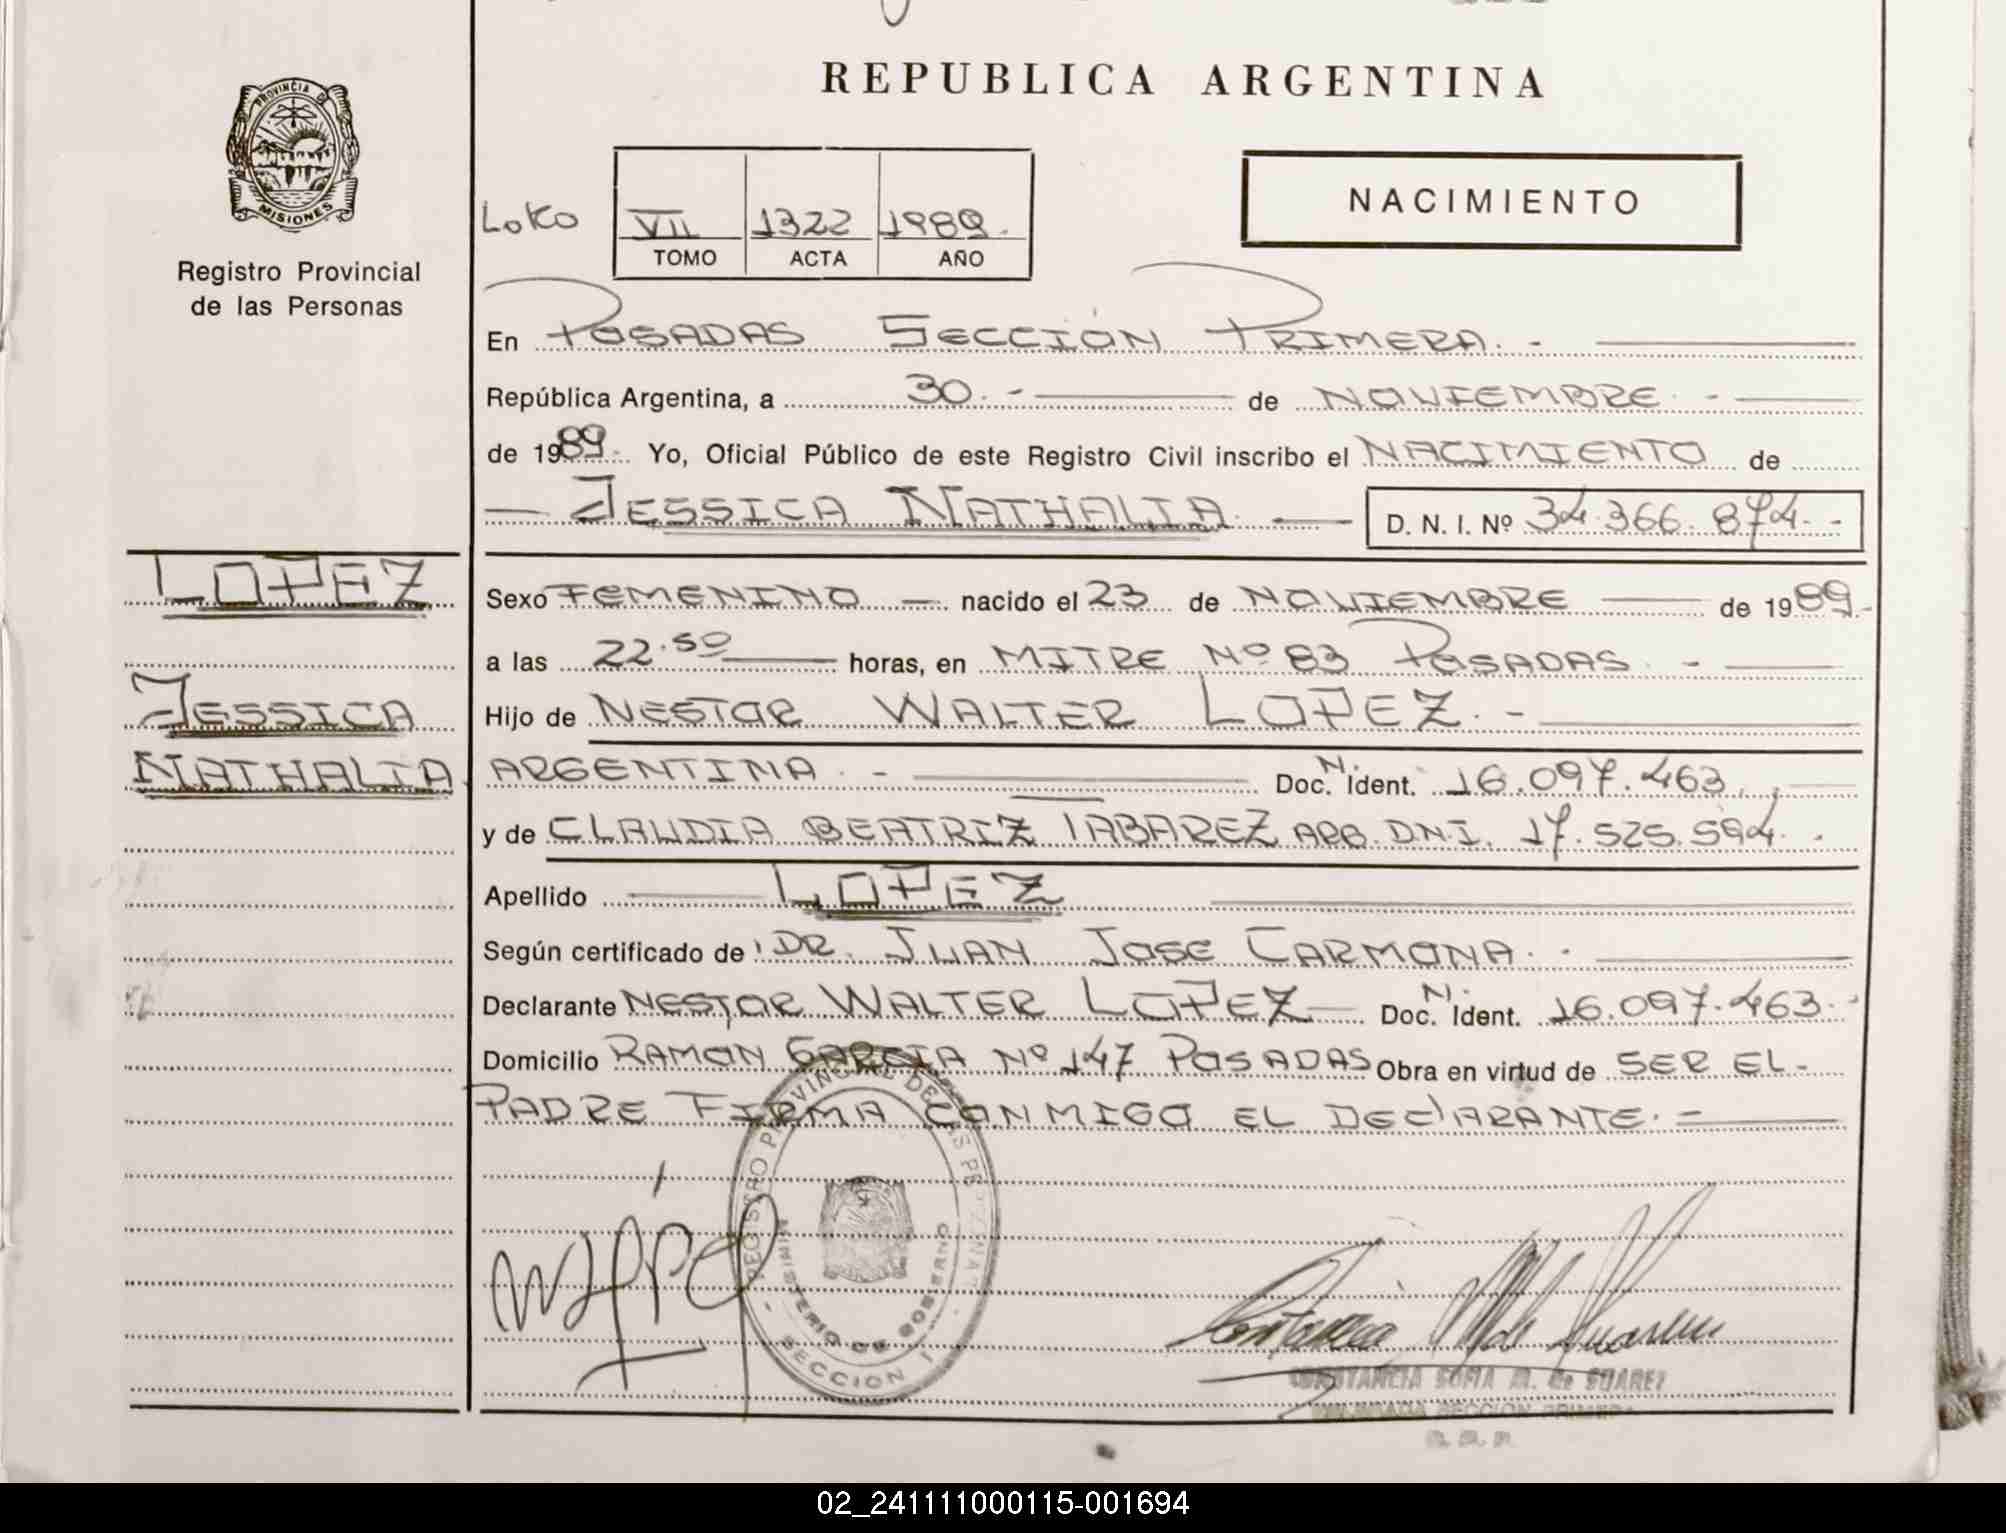 REPUBLICA ARGENTINA
PROVINCIA D MISIONES
Registro Provincial
de las Personas
LoKo
VII 1322 1989.
TOMO ACTA AÑO
NACIMIENTO
En POSADAS SECCIÓN PRIMERA. -
República Argentina, a 30. - de NOVIEMBRE. -
de 1989. Yo, Oficial Público de este Registro Civil inscribo el NACIMIENTO de
— JESSICA NATHALIA. — D. N. I. Nº 34.366.874. -
LOPEZ
JESSICA
NATHALIA.
Sexo FEMENINO — nacido el 23 de NOVIEMBRE — de 1989.-
a las 22.50 — horas, en MITRE Nº 83 POSADAS. -
Hijo de NESTOR WALTER LOPEZ. -
ARGENTINA. - Doc. N. Ident. 16.097.463.
y de CLAUDIA BEATRIZ TABAREZ ARG. D.N.I. 17.525.594. -
Apellido — LOPEZ
Según certificado de DR. JUAN JOSE CARMONA. -
Declarante NESTOR WALTER LOPEZ — Doc. N. Ident. 16.097.463. -
Domicilio RAMON GARCIA Nº 147 POSADAS Obra en virtud de SER EL-
PADRE FIRMA CONMIGO EL DEClARANTE. -
REGISTRO PROVINCIAL DE LAS PERSONAS
MINISTERIO DE GOBIERNO
- SECCION 1 -
CONSTANCIA SOFIA M. de SUAREZ
DELEGADA SECCION PRIMERA
02_241111000115-001694